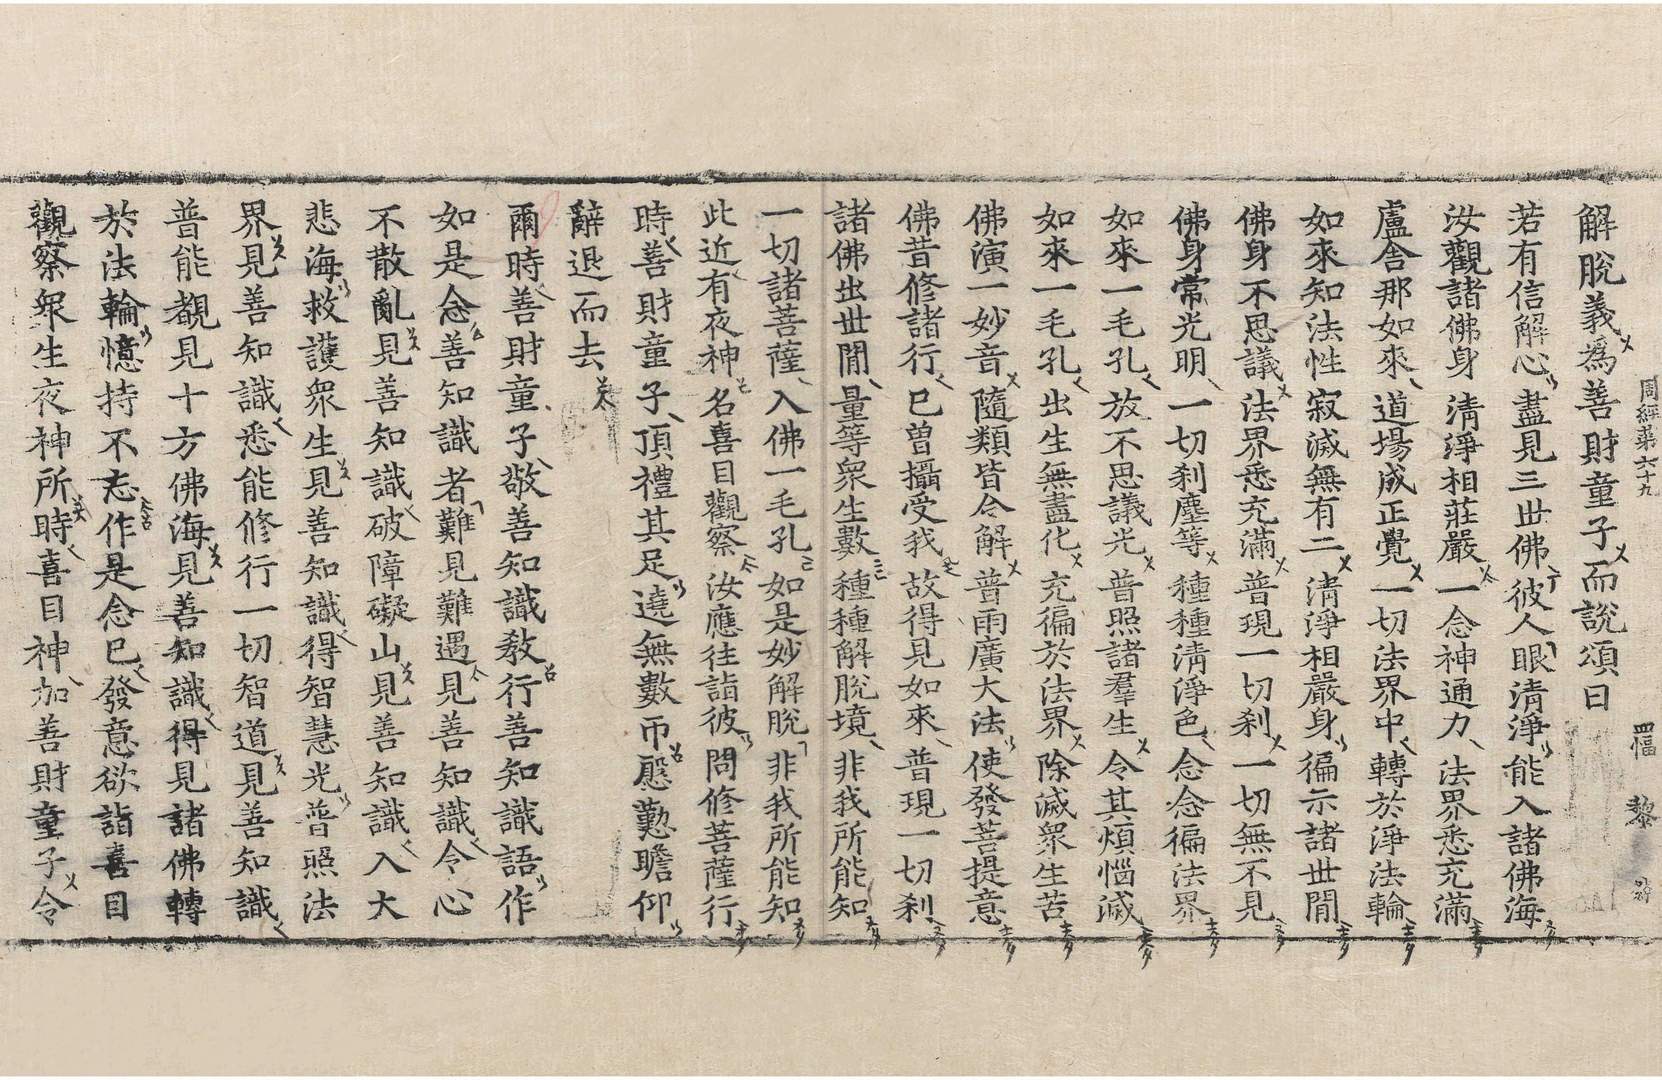 解脫義爲善財童子而說頌曰
周經第六十九 四幅 黎
若有信解心盡見三世佛彼人眼淸淨能入諸佛海
汝觀諸佛身淸淨相莊嚴一念神通力法界悉充滿
盧舍那如來道場成正覺一切法界中轉於淨法輪
如來知法性寂滅無有二淸淨相嚴身徧示諸世間
佛身不思議法界悉充滿普現一切刹一切無不見
佛身常光明一切刹塵等種種淸淨色念念徧法界
如來一毛孔放不思議光普照諸羣生令其煩惱滅
如來一毛孔出生無盡化充徧於法界除滅衆生苦
佛演一妙音隨類皆令解普雨廣大法使發菩提意
佛昔修諸行已曾攝受我故得見如來普現一切刹
諸佛出世間量等衆生數種種解脫境非我所能知
一切諸菩薩入佛一毛孔如是妙解脫非我所能知
此近有夜神名喜目觀察汝應往詣彼問修菩薩行
時善財童子頂禮其足遶無數帀慇懃瞻仰
辭退而去
爾時善財童子敬善知識敎行善知識語作
如是念善知識者難見難遇見善知識令心
不散亂見善知識破障礙山見善知識入大
悲海救護衆生見善知識得智慧光普照法
界見善知識悉能修行一切智道見善知識
普能覩見十方佛海見善知識得見諸佛轉
於法輪憶持不忘作是念已發意欲詣喜目
觀察衆生夜神所時喜目神加善財童子令